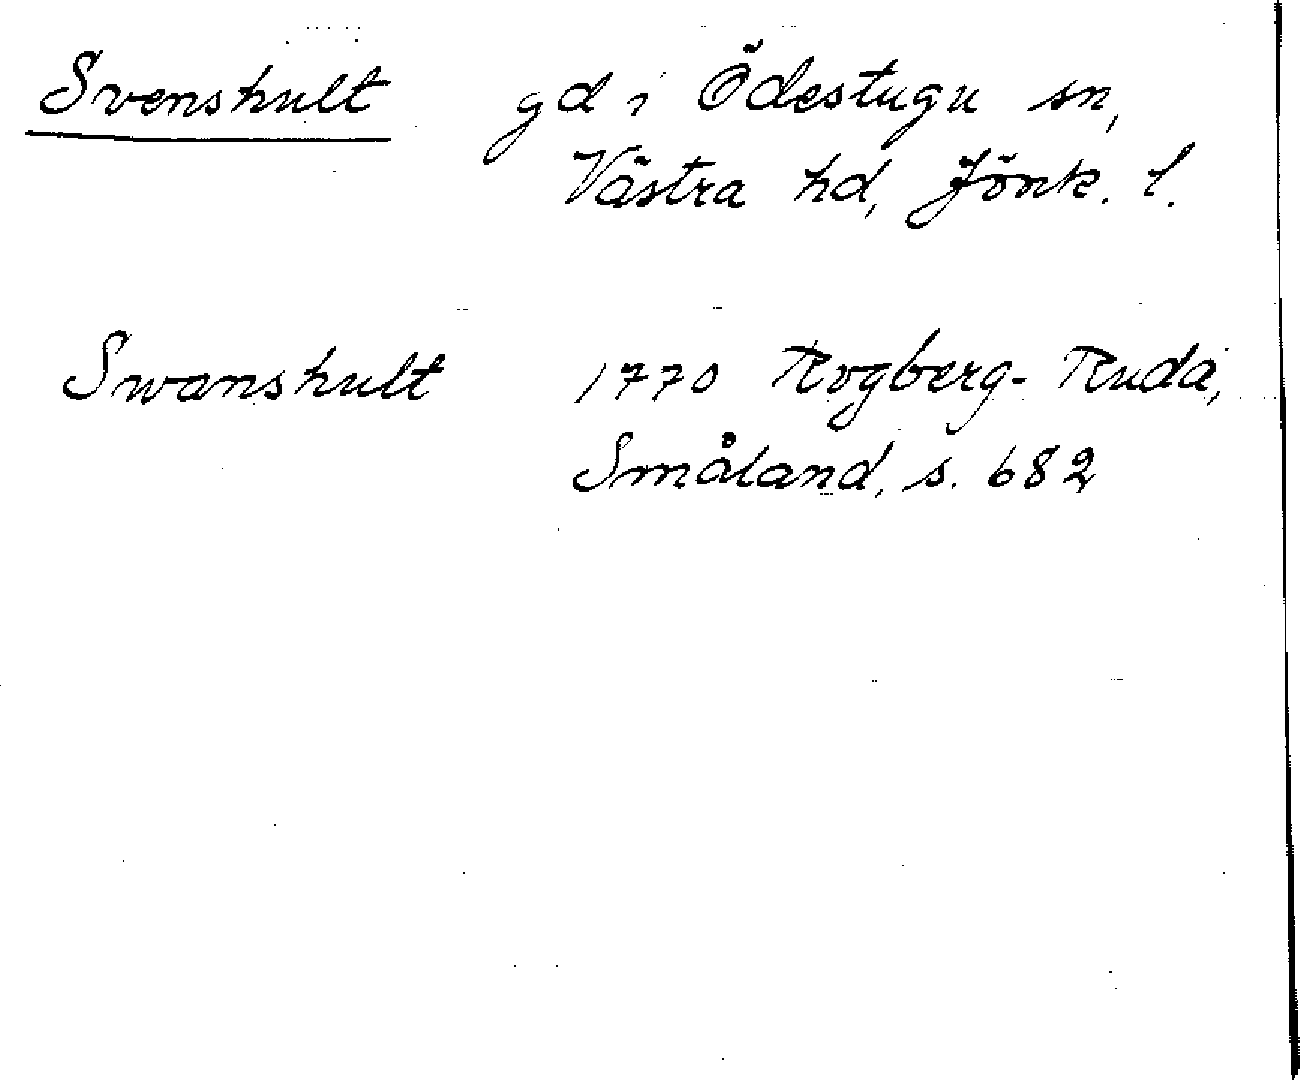 Svenshult gd i Ödestugu sn,
Västra hd, Jönk. l.
Swanshult 1770 Rogberg-Ruda,
Småland, s. 682